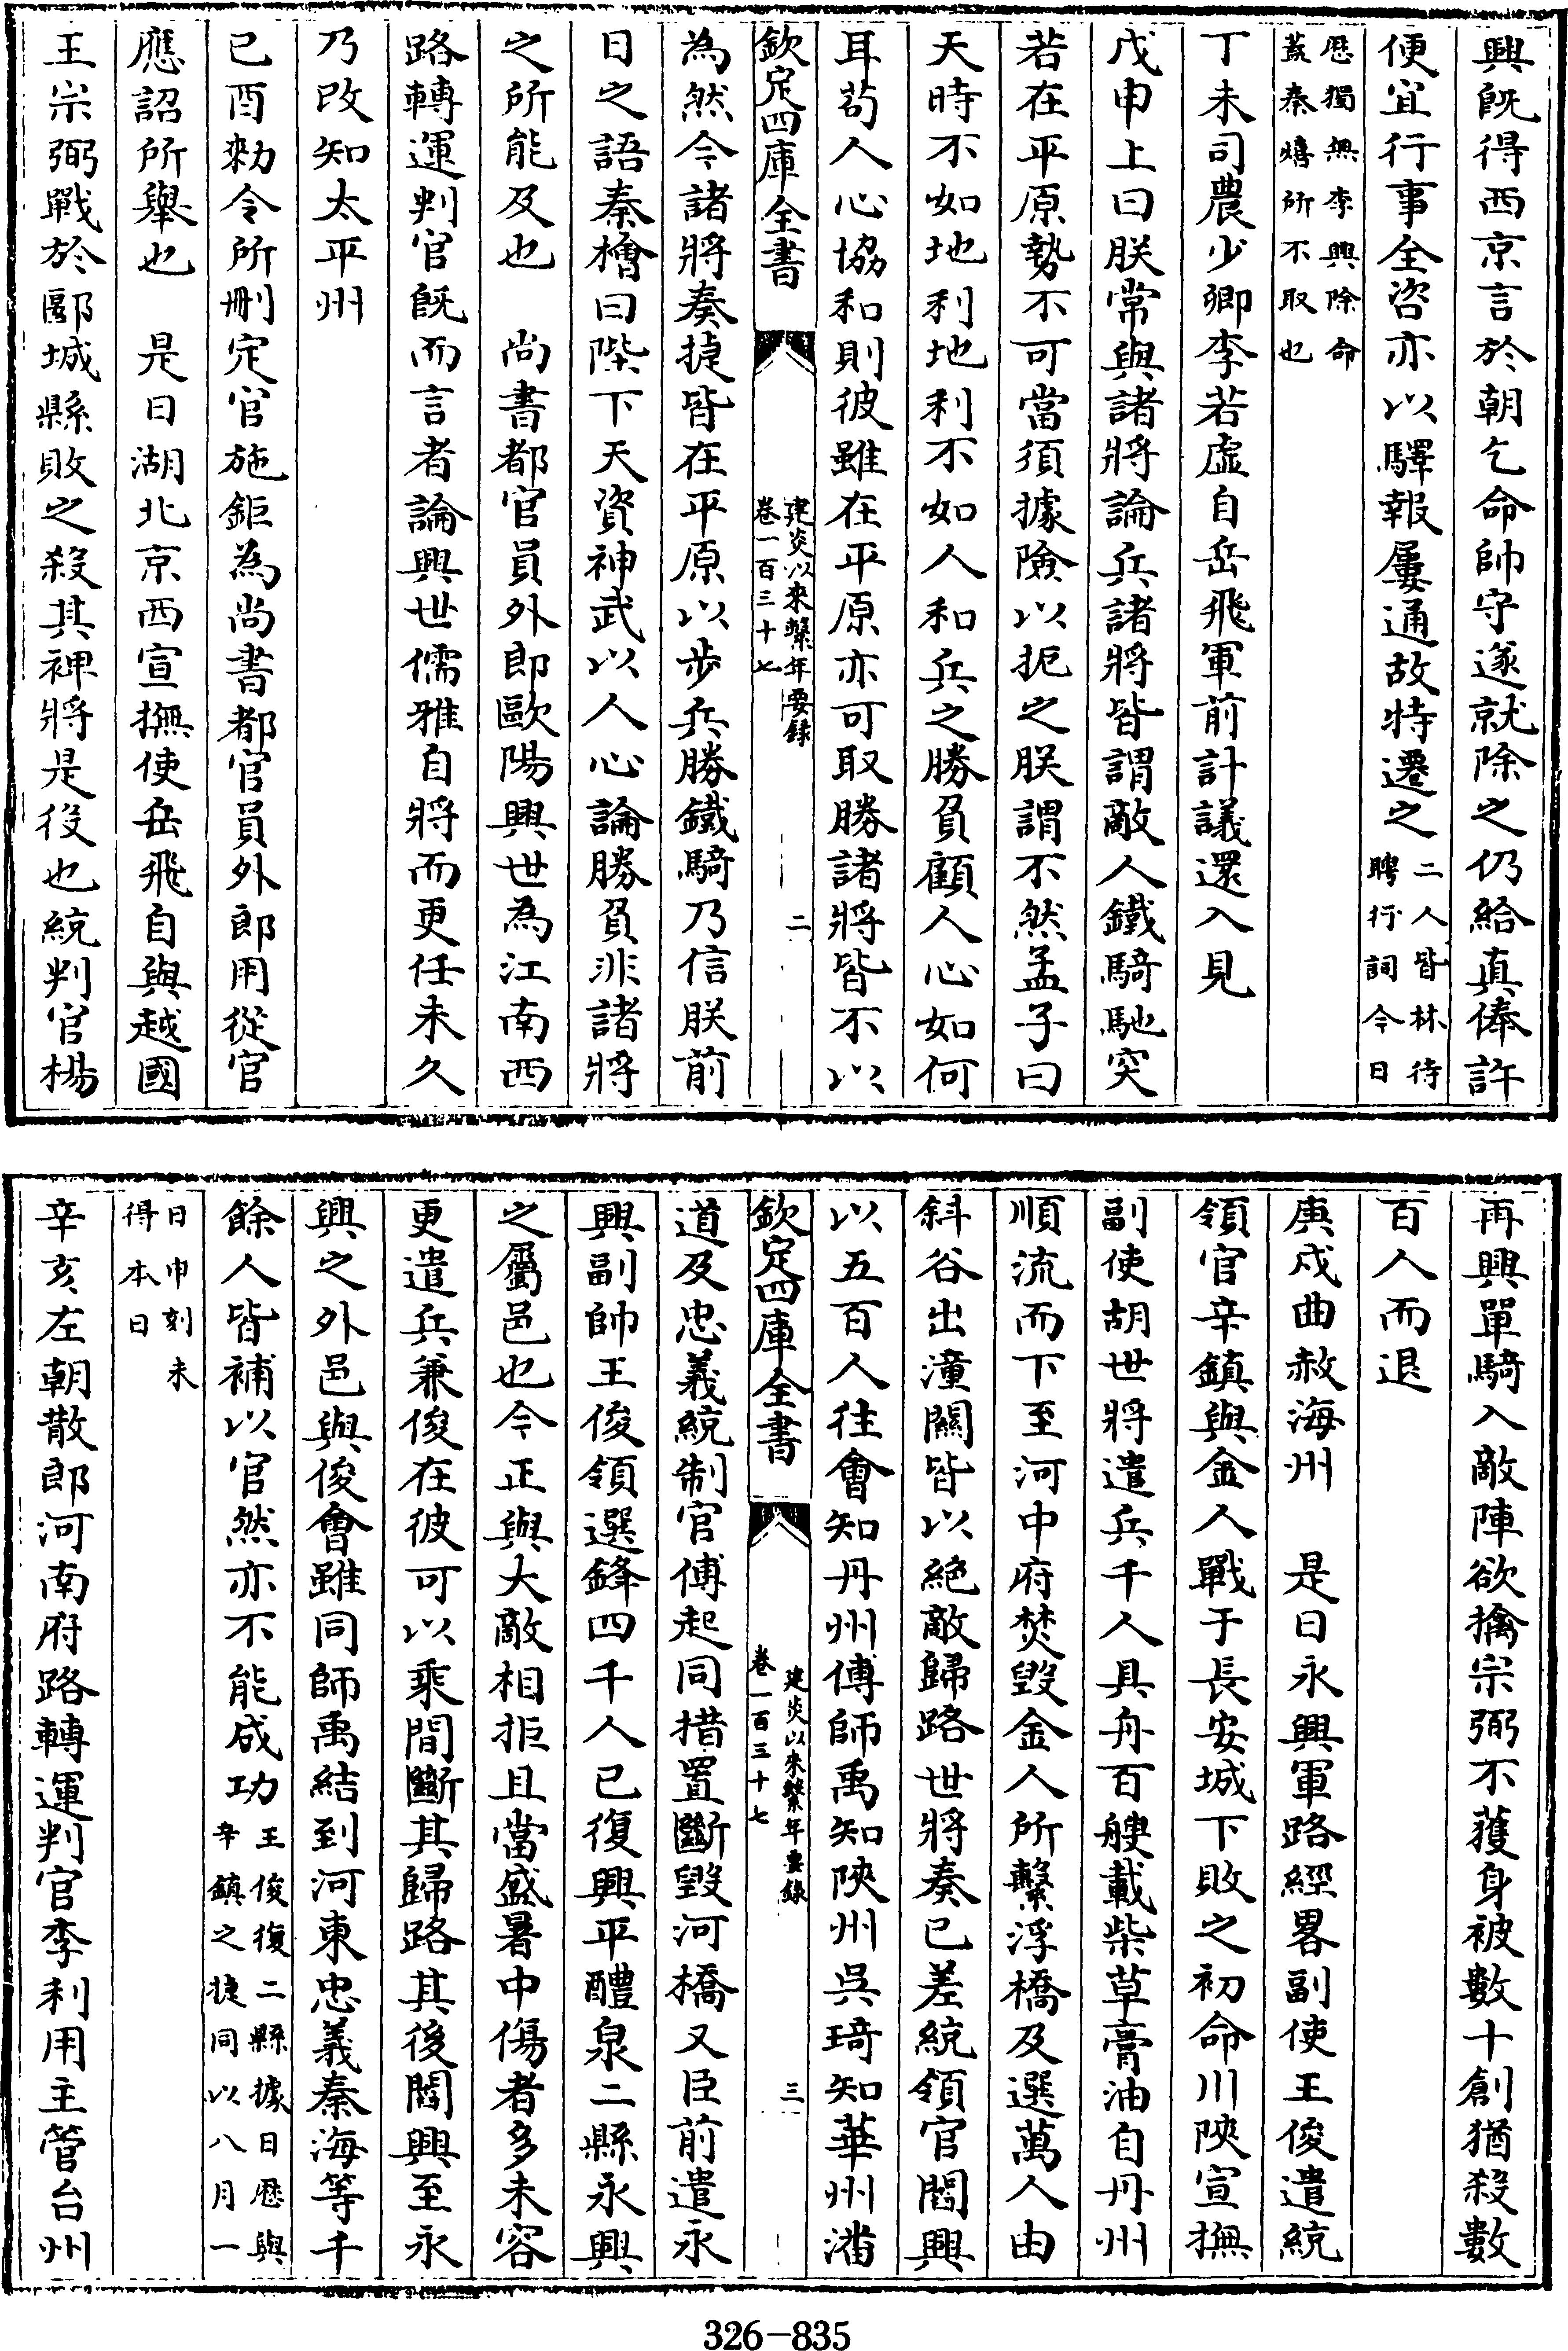 興既得西京言於朝乞命帥守遂就除之仍給真俸許
便宜行事全咨亦以驛報屢通故特遷之二人皆林待
聘行詞今日
厯獨無李興除命
蓋秦熺所不取也
丁未司農少卿李若虛自岳飛軍前計議還入見
戊申上曰朕常與諸將論兵諸將皆謂敵人鐵騎馳突
若在平原勢不可當須據險以扼之朕謂不然孟子曰
天時不如地利地利不如人和兵之勝負顧人心如何
耳苟人心協和則彼雖在平原亦可取勝諸將皆不以
欽定四庫全書
建炎以來繫年要録
卷一百三十七
二
為然今諸將奏捷皆在平原以步兵勝鐵騎乃信朕前
日之語秦檜曰陛下天資神武以人心論勝負非諸將
之所能及也　尚書都官員外郎歐陽興世為江南西
路轉運判官既而言者論興世儒雅自將而更任未久
乃改知太平州
已酉勑令所刪定官施鉅為尚書都官員外郎用從官
應詔所舉也　是日湖北京西宣撫使岳飛自與越國
王宗弼戰於郾城縣敗之殺其裨將是役也統判官楊
再興單騎入敵陣欲擒宗弼不獲身被數十創猶殺數
百人而退
庚戍曲赦海州　是日永興軍路經畧副使王俊遣統
領官辛鎮與金人戰于長安城下敗之初命川陜宣撫
副使胡世將遣兵千人具舟百艘載柴草膏油自丹州
順流而下至河中府焚毀金人所繫浮橋及選萬人由
斜谷出潼關皆以絶敵歸路世將奏已差統領官閻興
以五百人往會知丹州傅師禹知陜州吳琦知華州潘
欽定四庫全書
建炎以來繫年要錄
卷一百三十七
三
道及忠義統制官傅起同措置斷毀河橋又臣前遣永
興副帥王俊領選鋒四千人已復興平醴泉二縣永興
之屬邑也今正與大敵相拒且當盛暑中傷者多未容
更遣兵兼俊在彼可以乘間斷其歸路其後閻興至永
興之外邑與俊會雖同師禹結到河東忠義秦海等千
餘人皆補以官然亦不能成功王俊復二縣據日厯與
辛鎮之捷同以八月一
日申刻未
得本日
辛亥左朝散郎河南府路轉運判官李利用主管台州
326-835